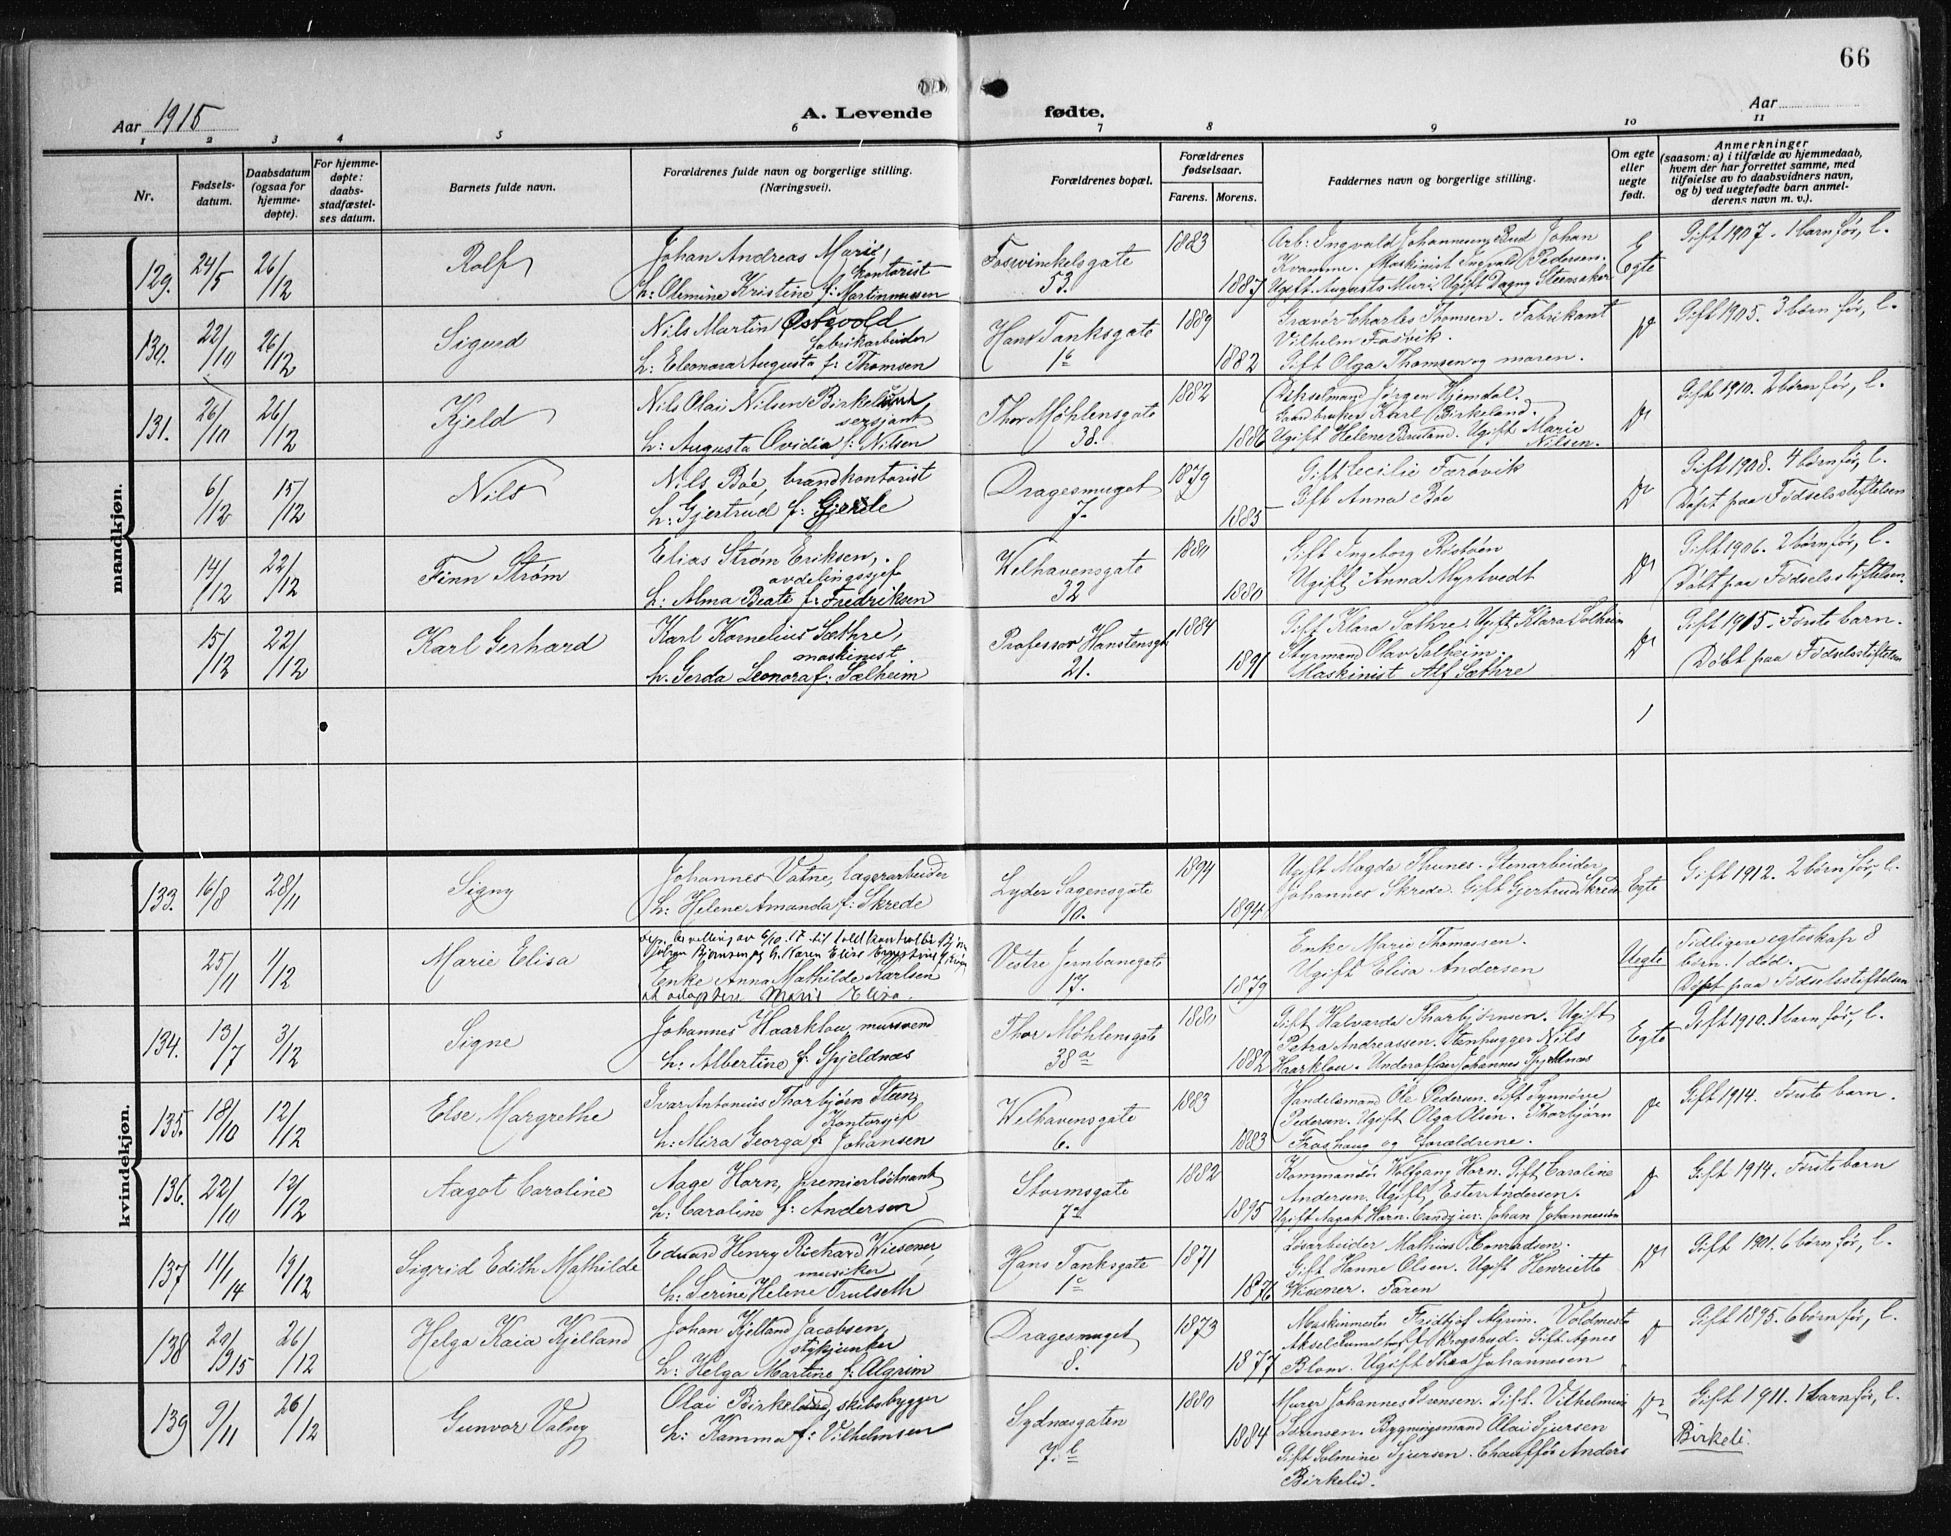 66
Aar 1915
A. Levende fødte.
Aar
1 2 3 4 5 6 7 8 9 10 11
Nr.
Fødsels-
datum.
Daabsdatum
(ogsaa for
hjemme-
døpte).
For hjemme-
døpte:
daabs-
stadfæstel-
ses datum.
Barnets fulde navn.
Forældrenes fulde navn og borgerlige stilling.
(Næringsvei).
Forældrenes bopæl.
Forældrenes
fødselsaar.
Farens. Morens.
Faddernes navn og borgerlige stilling.
Om egte
eller
uegte
født.
Anmerkninger
(saasom: a) i tilfælde av hjemmedaab,
hvem der har forrettet samme, med
tilføielse av to daabsvidners navn,
og b) ved uegtefødte barn anmel-
derens navn m. v.).
mandkjøn.
129. 24/5 26/12
Rolf
Johan Andreas
kontorist
h: Olemine Kristine f: Martinmussen
Foswinckelsgate
53.
1883
1887
Arb: Ingvald Johannesen, Bud Johan
Kvamme. Maskinist Ingvald Pedersen.
Ugift Augusta Muri. Ugift Dagny
Egte
Gift 1907. 1 barn før, l.
130. 22/10 26/12
Sigurd
Nils Martin Østevold
fabrikarbeider
h: Eleonora Augusta f: Thomsen
Hans Tanksgate
1c
1889
1882
Gravør Charles Thomsen. Fabrikant
Vilhelm Fosvik.
Gift Olga Thomsen og moren.
do
Gift 1905. 3 børn før, l.
131. 26/10 26/12
Kjeld
Nils Olai Nilsen Birkelund
sersjant
h: Augusta Ovidia f: Nilsen
Thor Møhlensgate
38.
1882
1886
Jørgen Hjemdal.
Gaardbruker Karl Birkeland.
Ugift Helene Ugift Marie
Nilsen.
do
Gift 1910. 2 børn før, l.
6/12 15/12
Nils
Nils Bøe, brandkontorist
h: Gjertrud f: Gjerde
Dragesmuget
7.
1879
1885
Gift Cecilie Forøvik
Gift Anna Bøe
do
Gift 1908. 4 børn før, l.
Døpt paa Fødselsstiftelsen
14/12 22/12
Finn Strøm
Elias Strøm Eriksen,
avdelingssjef
h: Alma Beate f: Fredriksen
Welhavensgate
32
1880
1880
Gift Ingeborg
Ugift Anna Myrtvedt
do
Gift 1906. 2 børn før, l.
Døbt paa Fødselsstiftelsen.
15/12 22/12
Karl Gerhard
Karl Kornelius Sæthre,
maskinist
h. Gerda Leonora f: Solheim
Professor Hanstensgt
21.
1884
1891
Gift Klara Sæthre. Ugift Klara Solheim
Styrmand Olav Solheim.
Maskinist Alf Sæthre
do
Gift 1915. Første barn.
Døbt paa Fødselsstiftelsen
kvindekjøn.
133. 16/8 28/11
Signy
Johannes Vatne, lagerarbeider
h: Helene Amanda f: Skrede
Lyder Sagensgate
10.
1894
1894
Ugift Magda Thunes. Stenarbeider
Johannes Skrede. Gift Gjertrud Skrede
Egte
Gift 1912. 2 børn før, l.
25/11 1/12
Marie Elisa
bevilling av 6/10.17 til toldkontrollør
Johan Bjørnsen og h. Karen Elise
Enke Anna Mathilde Karlsen
at adoptere Marie Elisa.
Vestre Jernbanegate
17.
1879
Enke Marie Thomassen.
Ugift Elisa Andersen
Uegte
Tidligere egteskap 8
børn. 1 død.
Døpt paa Fødselsstiftelsen
134. 13/7 3/12
Signe
Johannes Haarklou, mursvend
h: Albertine f: Spjeldnæs
Thor Møhlensgate
38a
1880
1882
Gift Halvarda Thorbjørnsen. Ugift
Petra Andreassen. Stenhugger Nils
Haarklou. Underofficer Johannes Spjeldnæs
Egte
Gift 1910. 1 barn før, l.
135. 18/10 12/12
Else Margrethe
Ivar Antonius Thorbjørn Steen,
Kontorsjef
h: Mira Georga f: Johansen
Welhavensgate
6.
1883
1883
Handelsmand Ole Pedersen. Gift Synnøve
Pedersen. Ugift Olga Olsen. Thorbjørn
Froshaug og Forældrene.
do
Gift 1914. Første barn.
136. 22/10 12/12
Aagot Caroline
Aage Horn, premierløitnant
h: Caroline f: Andersen
Stormsgate
1882
1895
Kommandør Wolfgang Horn. Gift Caroline
Andersen. Ugift Ester Andersen.
Ugift Aagot Horn. Cand jur. Johan Johannessen
do
Gift 1914. Første barn
137 11/1 14 19/12
Sigrid Edith Mathilde
Eduard Henry Richard Wiesener,
musiker
h: Serine Helene Trulseth
Hans Tanksgate
1c
1871
1876
Løsarbeider Mathias Conradsen.
Gift Hanne Olsen. Ugift Henriette
Wiesener. Faren
do
Gift 1901. 6 børn før, l.
138 26/12
Helga Kaia Kjelland
Johan Kjelland Jacobsen,
stykjunker
h: Helga Martine f: Algrim
Dragesmuget
8.
1873
1877
Maskinmester Fridtjof Algrim. Voldmester
Aksel Gift Agnes
Blom. Ugift Thea Johannesen
do
Gift 1895. 6 børn før, l.
139 9/11 26/12
Gunvor Valny
Olai Birkeland, skibsbygger
h: Kamma f: Vilhelmsen
Sydnæsgaten
7b
1880
1884
Murer Johannes Sørensen. Gift Vilhelmine
Sørensen. Bygningsmand Olai Sjursen
Gift Solmine Sjursen. Chauffør Anders
Birkelid.
do
Gift 1911. 1 barn før, l.
Birkeli.